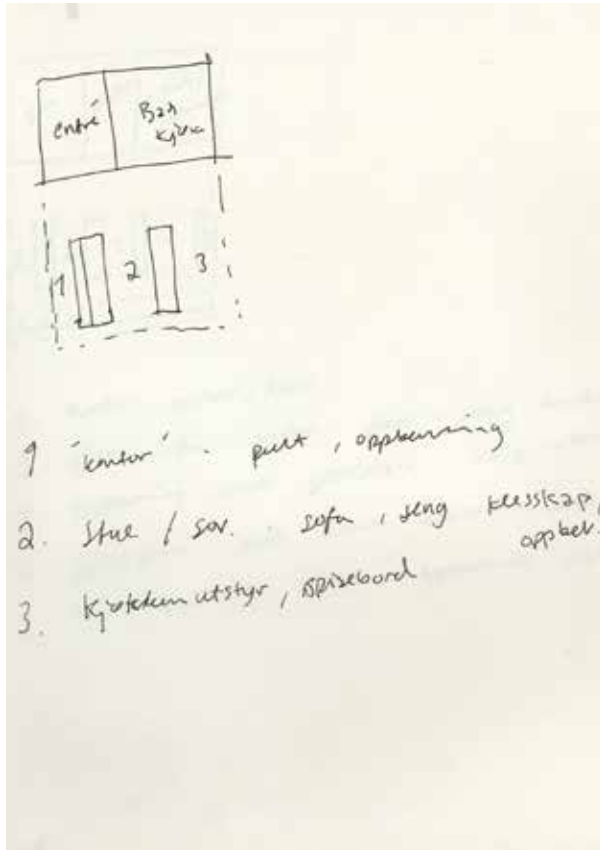 entré
Bad
Kjøkken
1 2 3
1 'kontor' . pult , oppbevaring
2. Stue / Sov. sofa , seng klesskap,
oppbev.
3. Kjøkkenutstyr , spisebord